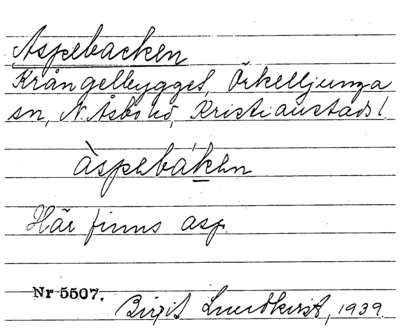 Aspebacken
Krångelbygget, Örkelljunga
sn, N. Åsbo hd, Kristianstads l.
àspebáken
Här finns asp.
Nr 5507.
Birgit Lundkvist, 1939.